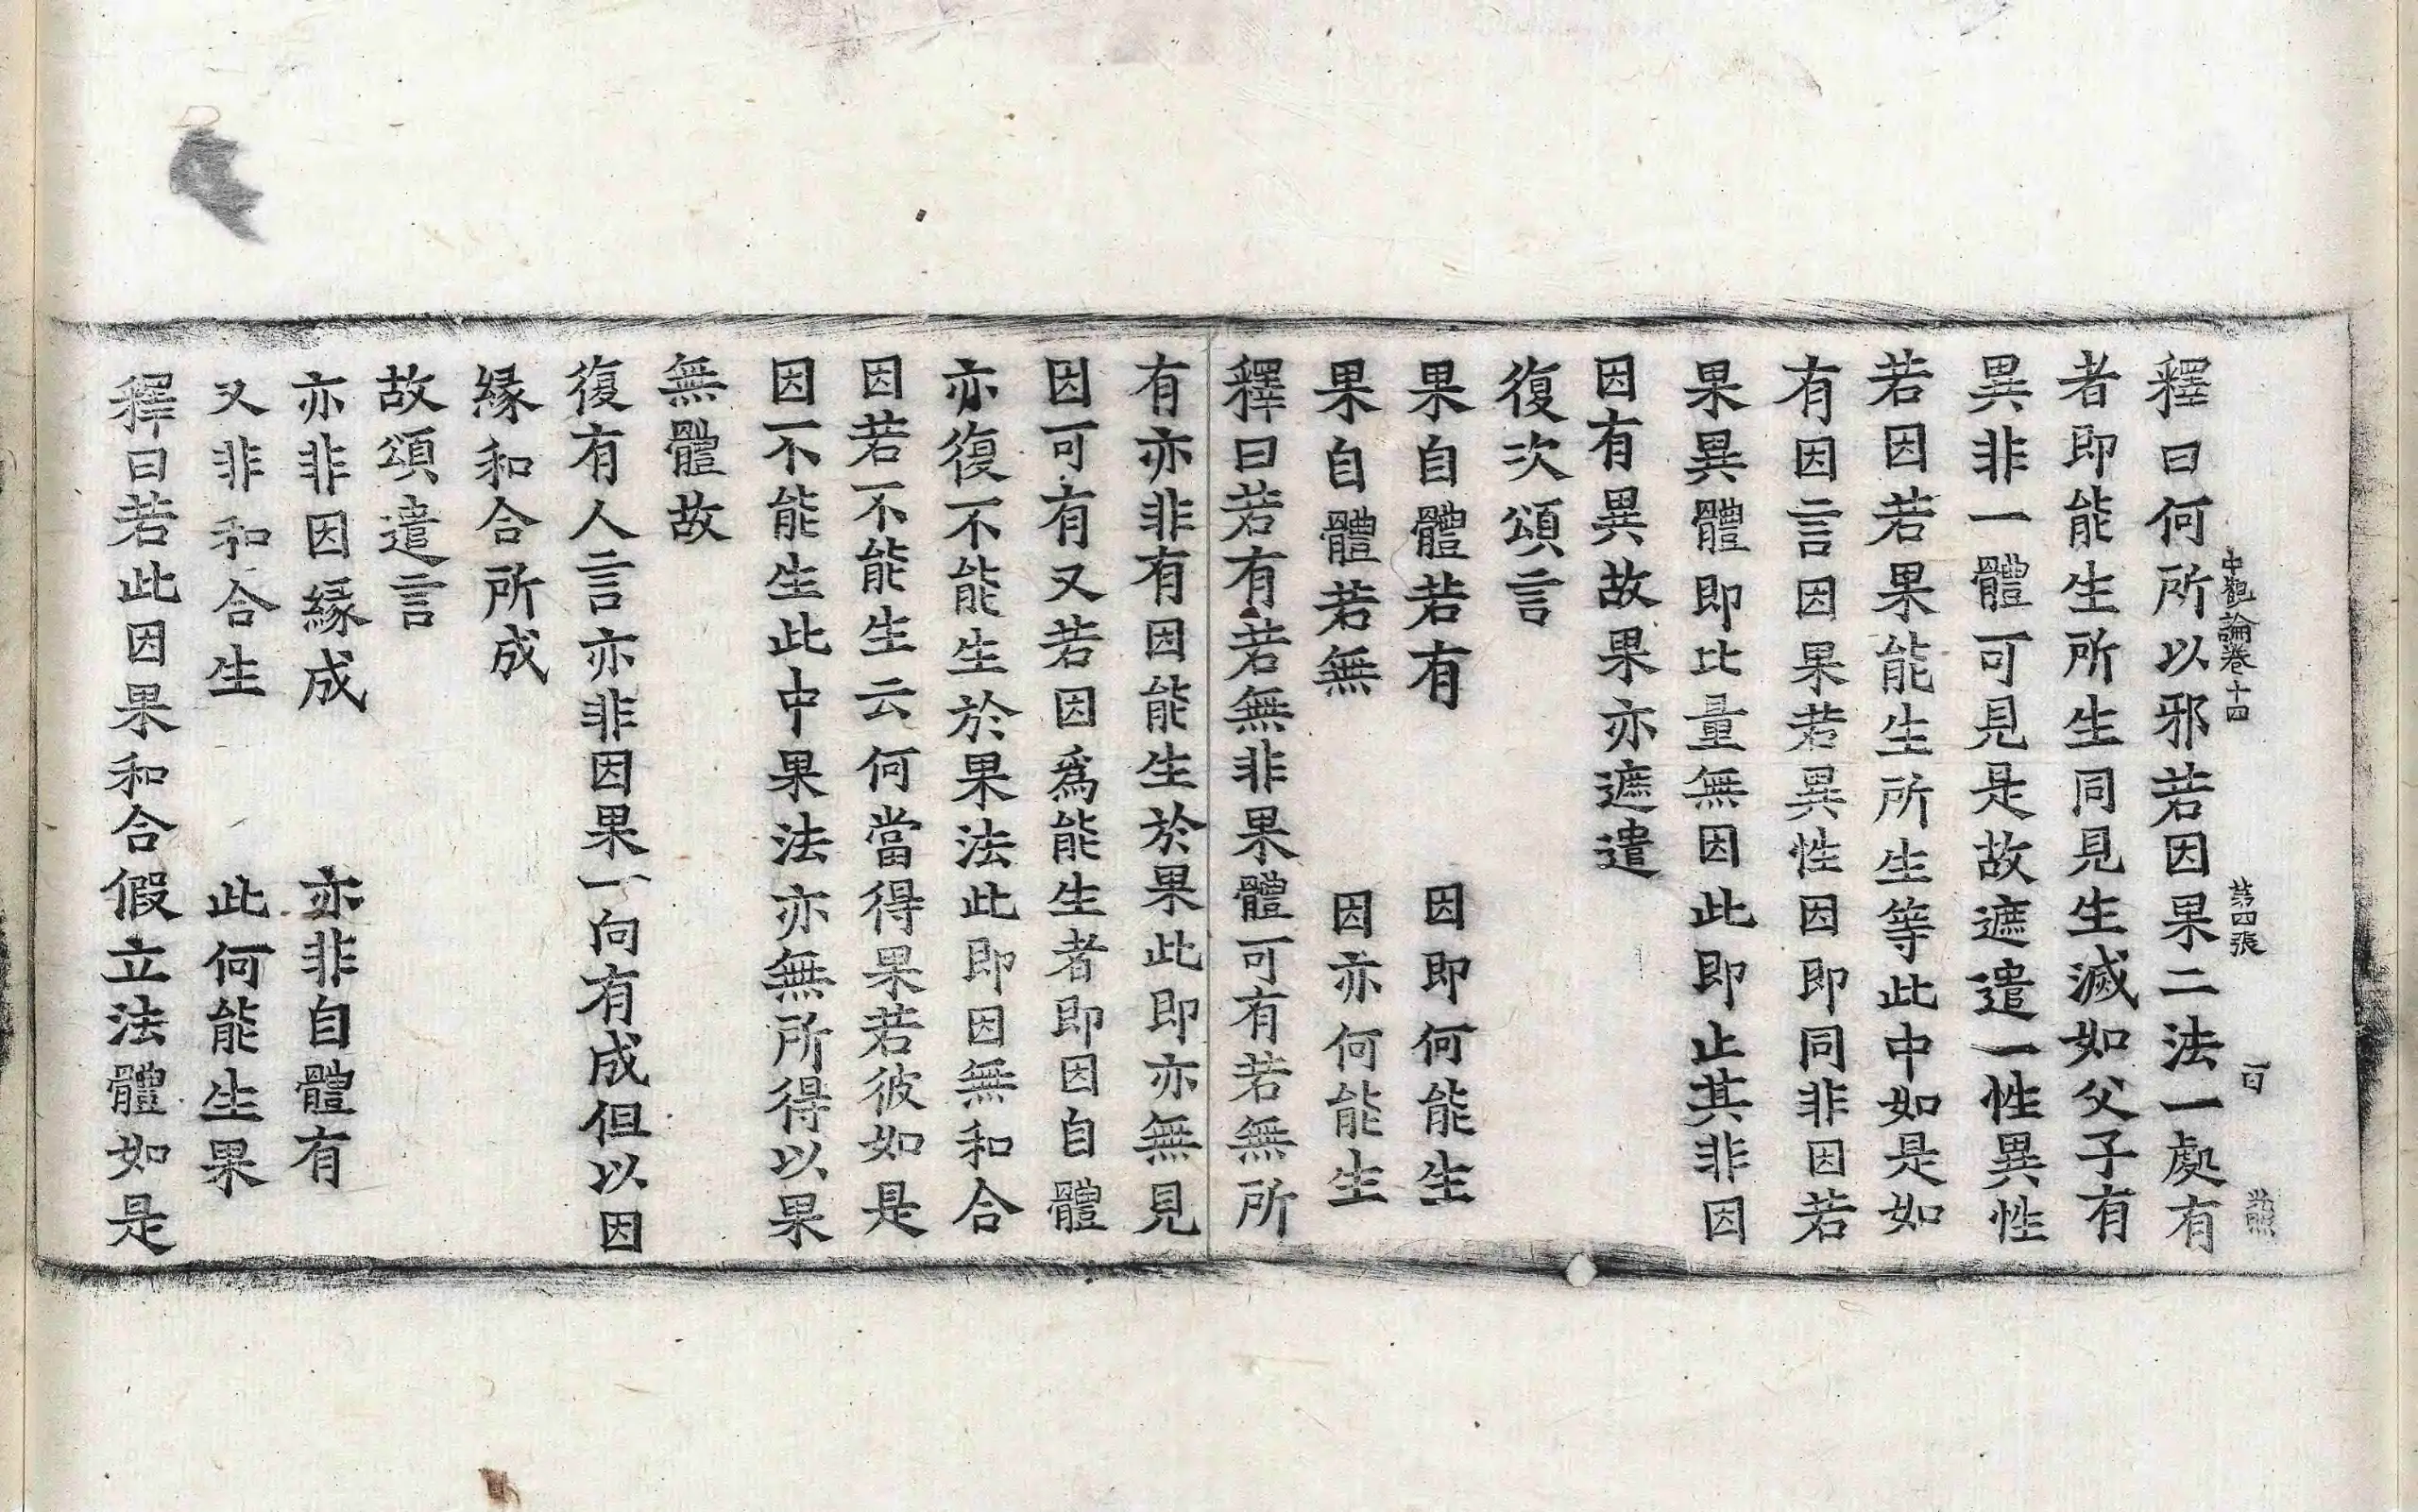 中觀論卷十四 苐四張 百
釋曰何所以邪若因果二法一處有
者即能生所生同見生滅如父子有
異非一體可見是故遮遣一性異性
若因若果能生所生等此中如是如
有因言因果若異性因即同非因若
果異體即比量無因此即止其非因
因有異故果亦遮遣
復次頌言
果自體若有 因即何能生
果自體若無 因亦何能生
釋曰若有若無非果體可有若無所
有亦非有因能生於果此即亦無見
因可有又若因爲能生者即因自體
亦復不能生於果法此即因無和合
因若不能生云何當得果若彼如是
因不能生此中果法亦無所得以果
無體故
復有人言亦非因果一向有成但以因
縁和合所成
故頌遣言
亦非因縁成 亦非自體有
又非和合生 此何能生果
釋曰若此因果和合假立法體如是